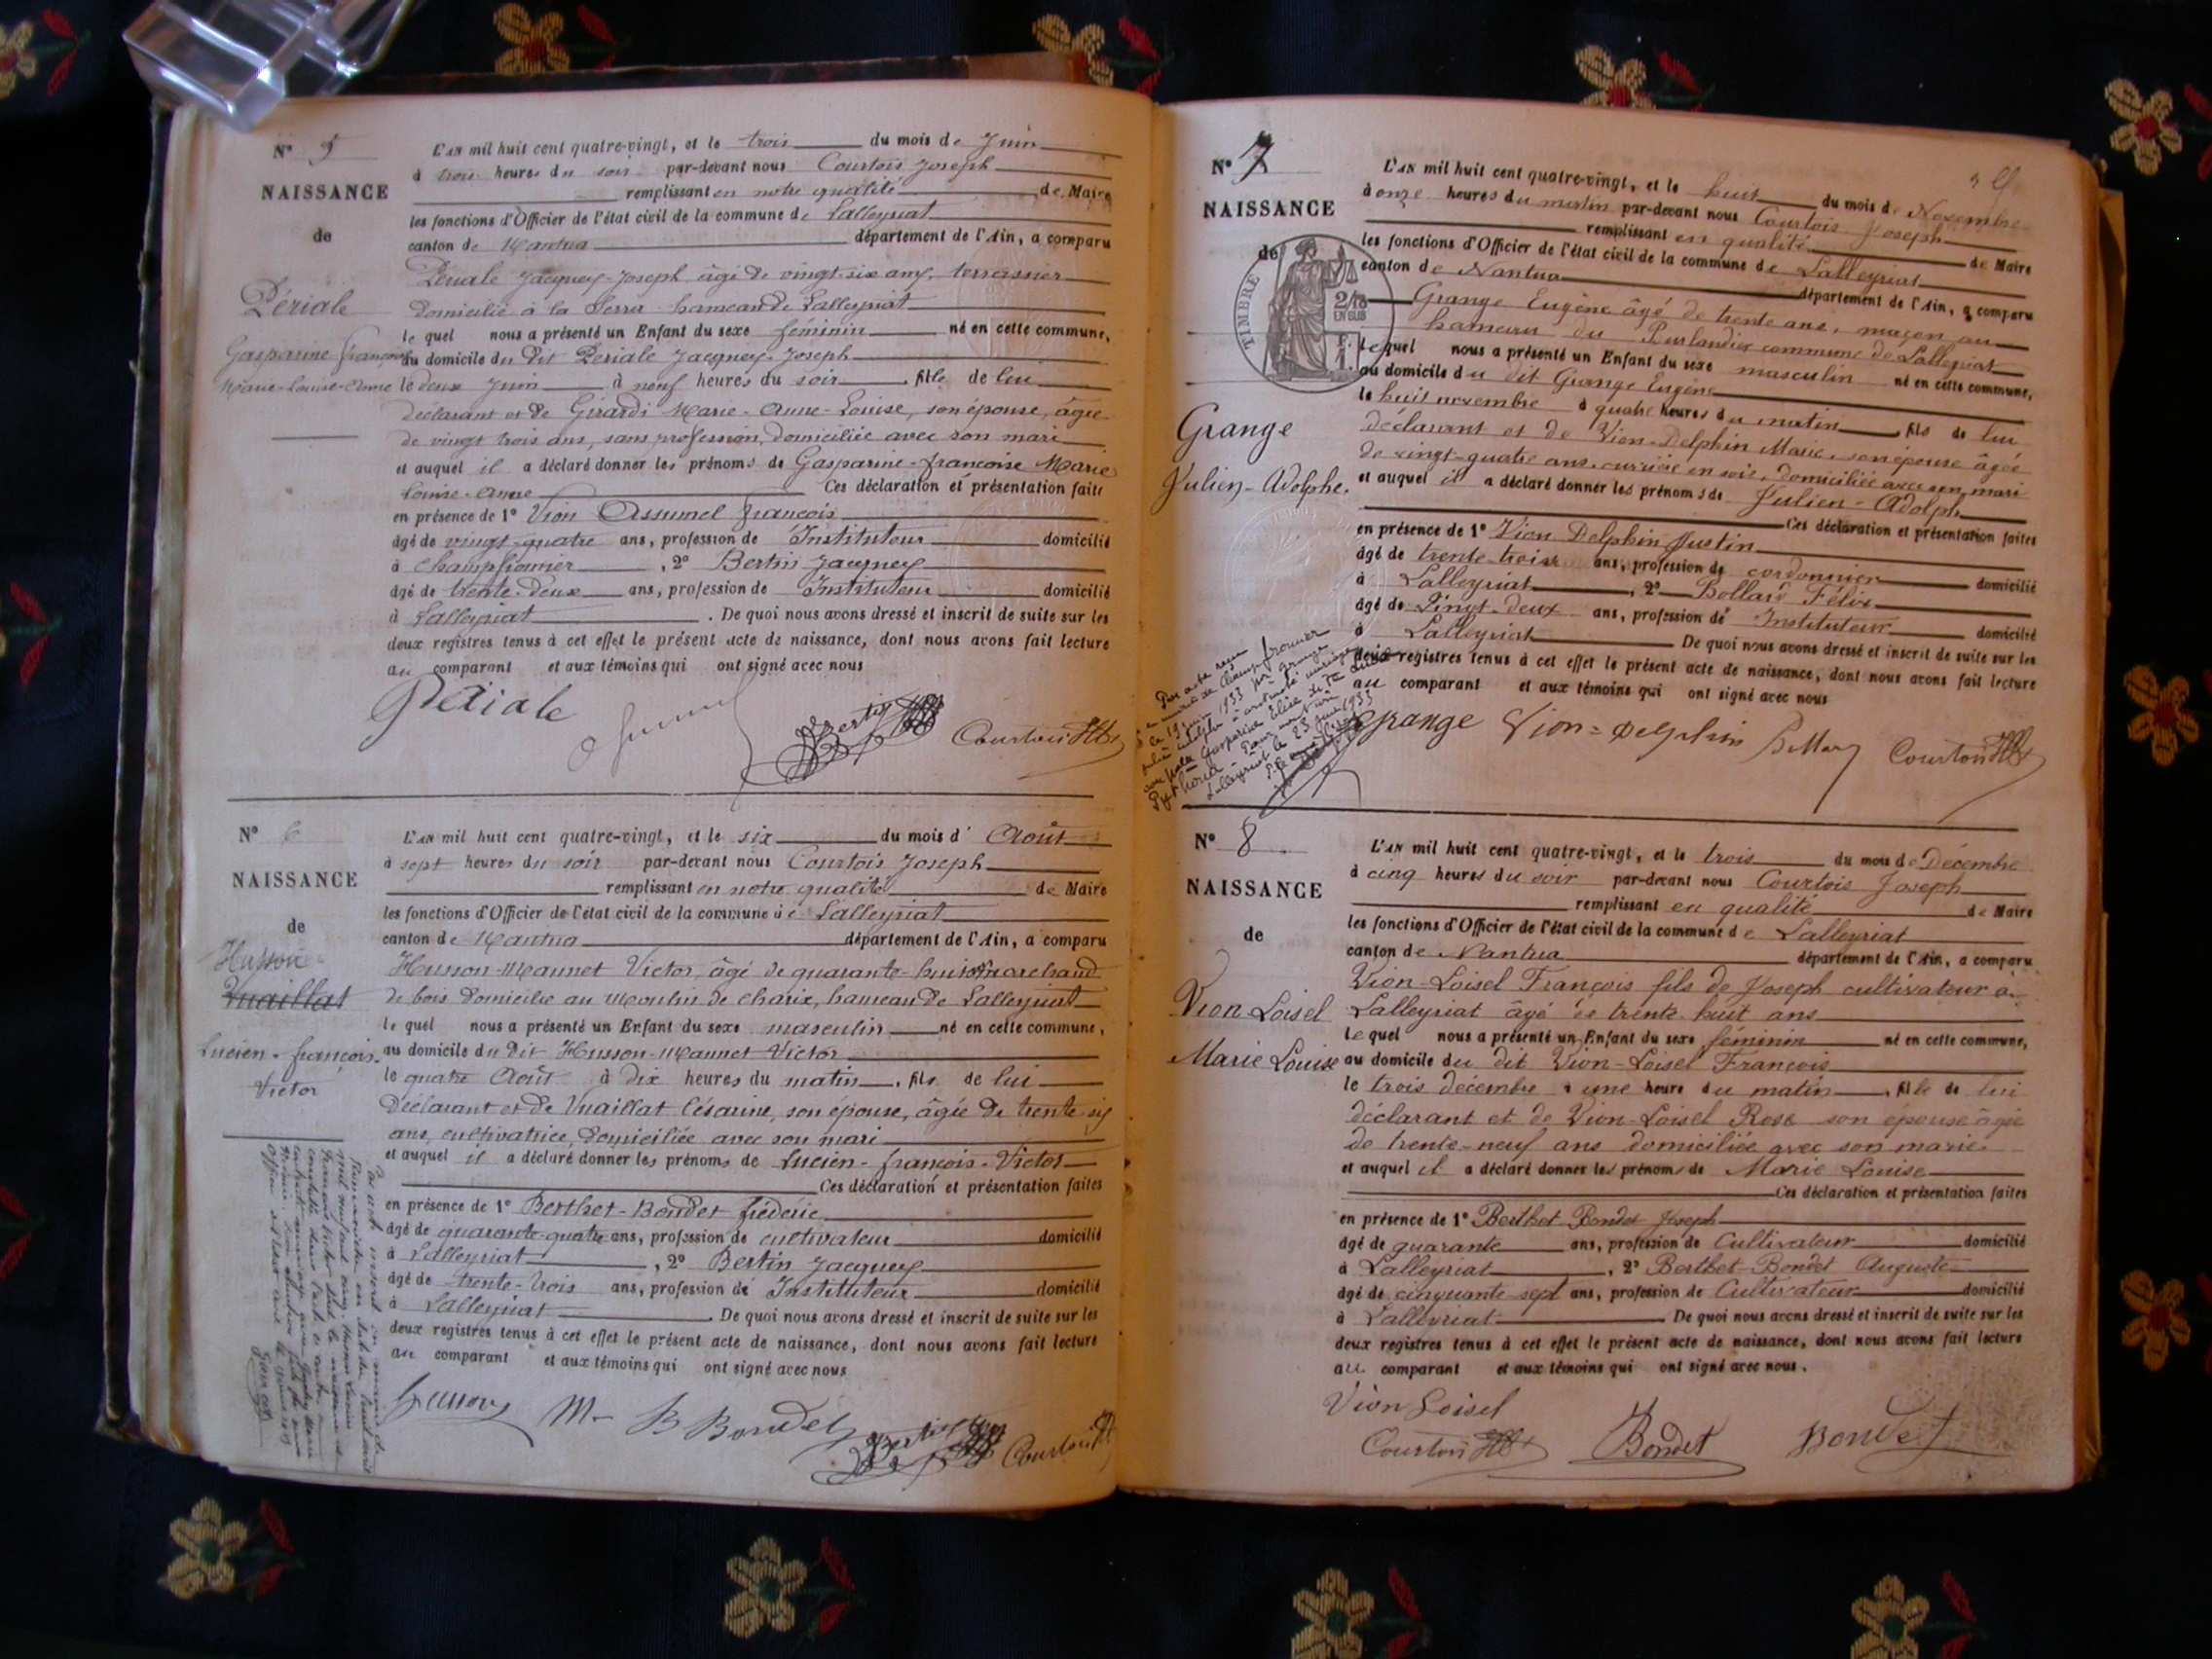 N° 5
NAISSANCE
de
Périale
Gasparine françoise
Marie-Louise-Anne
L'AN mil huit cent quatre-vingt, et le trois du mois de Juin
à trois heures du soir par-devant nous Courtois Joseph
remplissant en notre qualité de Maire
les fonctions d'Officier de l'état civil de la commune de Lalleyriat
canton de Nantua département de l'Ain, a comparu
Périale Jacques-Joseph âgé de vingt-six ans, terrassier
domicilié à la Serra hameau de Lalleyriat
le quel nous a présenté un Enfant du sexe féminin né en cette commune,
au domicile du dit Périale Jacques-Joseph
le deux Juin à neuf heures du soir, fille de lui
déclarant et de Girardi Marie-Anne-Louise, son épouse, âgée
de vingt trois ans, sans profession, domiciliée avec son mari
et auquel il a déclaré donner les prénoms de Gasparine-françoise Marie
Louise-Anne Ces déclaration et présentation faites
en présence de 1° Vion Assumel françois
âgé de vingt-quatre ans, profession de Instituteur domicilié
à Champfromier, 2° Bertin Jacques
âgé de trente-deux ans, profession de Instituteur domicilié
à Lalleyriat. De quoi nous avons dressé et inscrit de suite sur les
deux registres tenus à cet effet le présent acte de naissance, dont nous avons fait lecture
au comparant et aux témoins qui ont signé avec nous
Périale Bertin Courtois
N° 6
NAISSANCE
de
Husson
Vuaillat
Lucien-françois-
Victor
L'AN mil huit cent quatre-vingt, et le six du mois d' Août
à sept heures du soir par-devant nous Courtois Joseph
remplissant en notre qualité de Maire
les fonctions d'Officier de l'état civil de la commune de Lalleyriat
canton de Nantua département de l'Ain, a comparu
Husson-Maunet Victor, âgé de quarante-huit marchand
de bois domicilié au Moulin de Charix, hameau de Lalleyriat
le quel nous a présenté un Enfant du sexe masculin né en cette commune,
au domicile du dit Husson-Maunet Victor
le quatre Août à dix heures du matin, fils de lui
déclarant et de Vuaillat Césarine, son épouse, âgée de trente-six
ans, cultivatrice, domiciliée avec son mari
et auquel il a déclaré donner les prénoms de Lucien-françois-Victor
Ces déclaration et présentation faites
en présence de 1° Berthet-Bondet fréderic
âgé de quarante-quatre ans, profession de cultivateur domicilié
à Lalleyriat, 2° Bertin Jacques
âgé de trente-trois ans, profession de Instituteur domicilié
à Lalleyriat. De quoi nous avons dressé et inscrit de suite sur les
deux registres tenus à cet effet le présent acte de naissance, dont nous avons fait lecture
au comparant et aux témoins qui ont signé avec nous
Husson M- B Bondet Bertin Courtois
N° 7
NAISSANCE
de
TIMBRE
2/10
EN SUS
Grange
Julien-Adolphe.
L'AN mil huit cent quatre-vingt, et le huit du mois de Novembre
à onze heures du matin par-devant nous Courtois Joseph
remplissant en qualité de Maire
les fonctions d'Officier de l'état civil de la commune de Lalleyriat
canton de Nantua département de l'Ain, a comparu
Grange Eugène âgé de trente ans, maçon au
hameau du commune de Lalleyriat
le quel nous a présenté un Enfant du sexe masculin né en cette commune,
au domicile du dit Grange Eugène
le huit novembre à quatre heures du matin, fils de lui
déclarant et de Vion-Delphin Marie, son épouse âgée
de vingt-quatre ans, ouvrière en soie, domiciliée avec son mari
et auquel il a déclaré donner les prénoms de Julien-Adolphe
Ces déclaration et présentation faites
en présence de 1° Vion Delphin Justin
âgé de trente-trois ans, profession de cordonnier domicilié
à Lalleyriat, 2° Bollard Félix
âgé de Vingt-deux ans, profession de Instituteur domicilié
à Lalleyriat De quoi nous avons dressé et inscrit de suite sur les
deux registres tenus à cet effet le présent acte de naissance, dont nous avons fait lecture
au comparant et aux témoins qui ont signé avec nous
Grange Vion-Delphin Courtois
N° 8
NAISSANCE
de
Vion Loisel
Marie Louise
L'AN mil huit cent quatre-vingt, et le trois du mois de Décembre
à cinq heures du soir par-devant nous Courtois Joseph
remplissant en qualité de Maire
les fonctions d'Officier de l'état civil de la commune de Lalleyriat
canton de Nantua département de l'Ain, a comparu
Vion-Loisel François fils de Joseph cultivateur à
Lalleyriat âgé de trente huit ans
le quel nous a présenté un Enfant du sexe féminin né en cette commune,
au domicile du dit Vion-Loisel François
le trois décembre à une heure du matin, fille de lui
déclarant et de Vion-Loisel Rose son épouse âgée
de trente-neuf ans domiciliée avec son marie
et auquel il a déclaré donner les prénoms de Marie Louise
Ces déclaration et présentation faites
en présence de 1° Berthet Bondet Joseph
âgé de quarante ans, profession de Cultivateur domicilié
à Lalleyriat, 2° Berthet-Bondet Auguste
âgé de cinquante sept ans, profession de Cultivateur domicilié
à Lalleyriat De quoi nous avons dressé et inscrit de suite sur les
deux registres tenus à cet effet le présent acte de naissance, dont nous avons fait lecture
au comparant et aux témoins qui ont signé avec nous.
Vion Loisel
Courtois Bondet Bondet